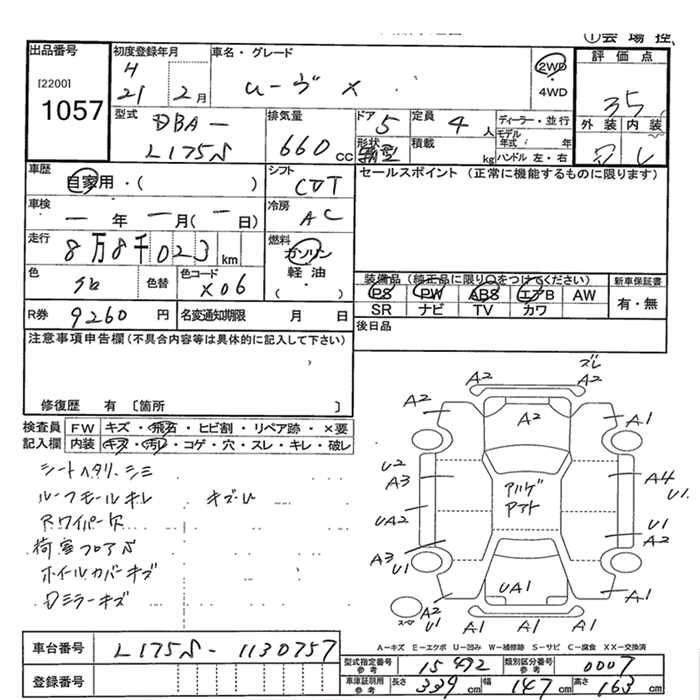 ①会場控
出品番号 初度登録年月 車名・グレード 評価点
[2200] H 21 2月 ムーヴ X 2WD ・ 4WD 3.5
1057 型式 DBA- L175S 排気量 660cc ドア 5 定員 4人 ディーラー・並行 外装 内装
形状 箱型 積載 kg モデル年式 年 ハンドル 左・右
車歴 自家用・( ) シフト CVT セールスポイント (正常に機能するものに限ります)
車検 一年 一月(一日) 冷房 AC
走行 8万8千023km 燃料 ガソリン・軽油・( )
色 色替 色コード X06 装備品(純正品に限り○をつけてください) 新車保証書
PS PW ABS エアB AW 有・無
SR ナビ TV カワ
R券 9260円 名変通知期限 月 日 後日品
注意事項申告欄(不具合内容等は具体的に記入して下さい)
修復歴 有〔箇所 〕
検査員 FW キズ・飛石・ヒビ割・リペア跡・×要
記入欄 内装 キズ・汚レ・コゲ・穴・スレ・キレ・破レ
シートヘタリ、シミ
ルーフモールキレ キズU
Rワイパー欠
荷室フロアS
ホイールカバーキズ
Dミラーキズ
ズレ
A2 A2
A2 A2 A1
U2 A3 A4 U1
UA2 U1 A2
A3 U1 A1
UA1
スペ A2 U1 A1 A1 A1
A-キズ E-エクボ U-凹み W-補修跡 S-サビ C-腐食 XX-交換済
車台番号 L175S-1130757
型式指定番号 参考 15492 類別区分番号 参考 0007
登録番号 車庫証明用 参考 長さ 339cm 幅 147cm 高さ 163cm